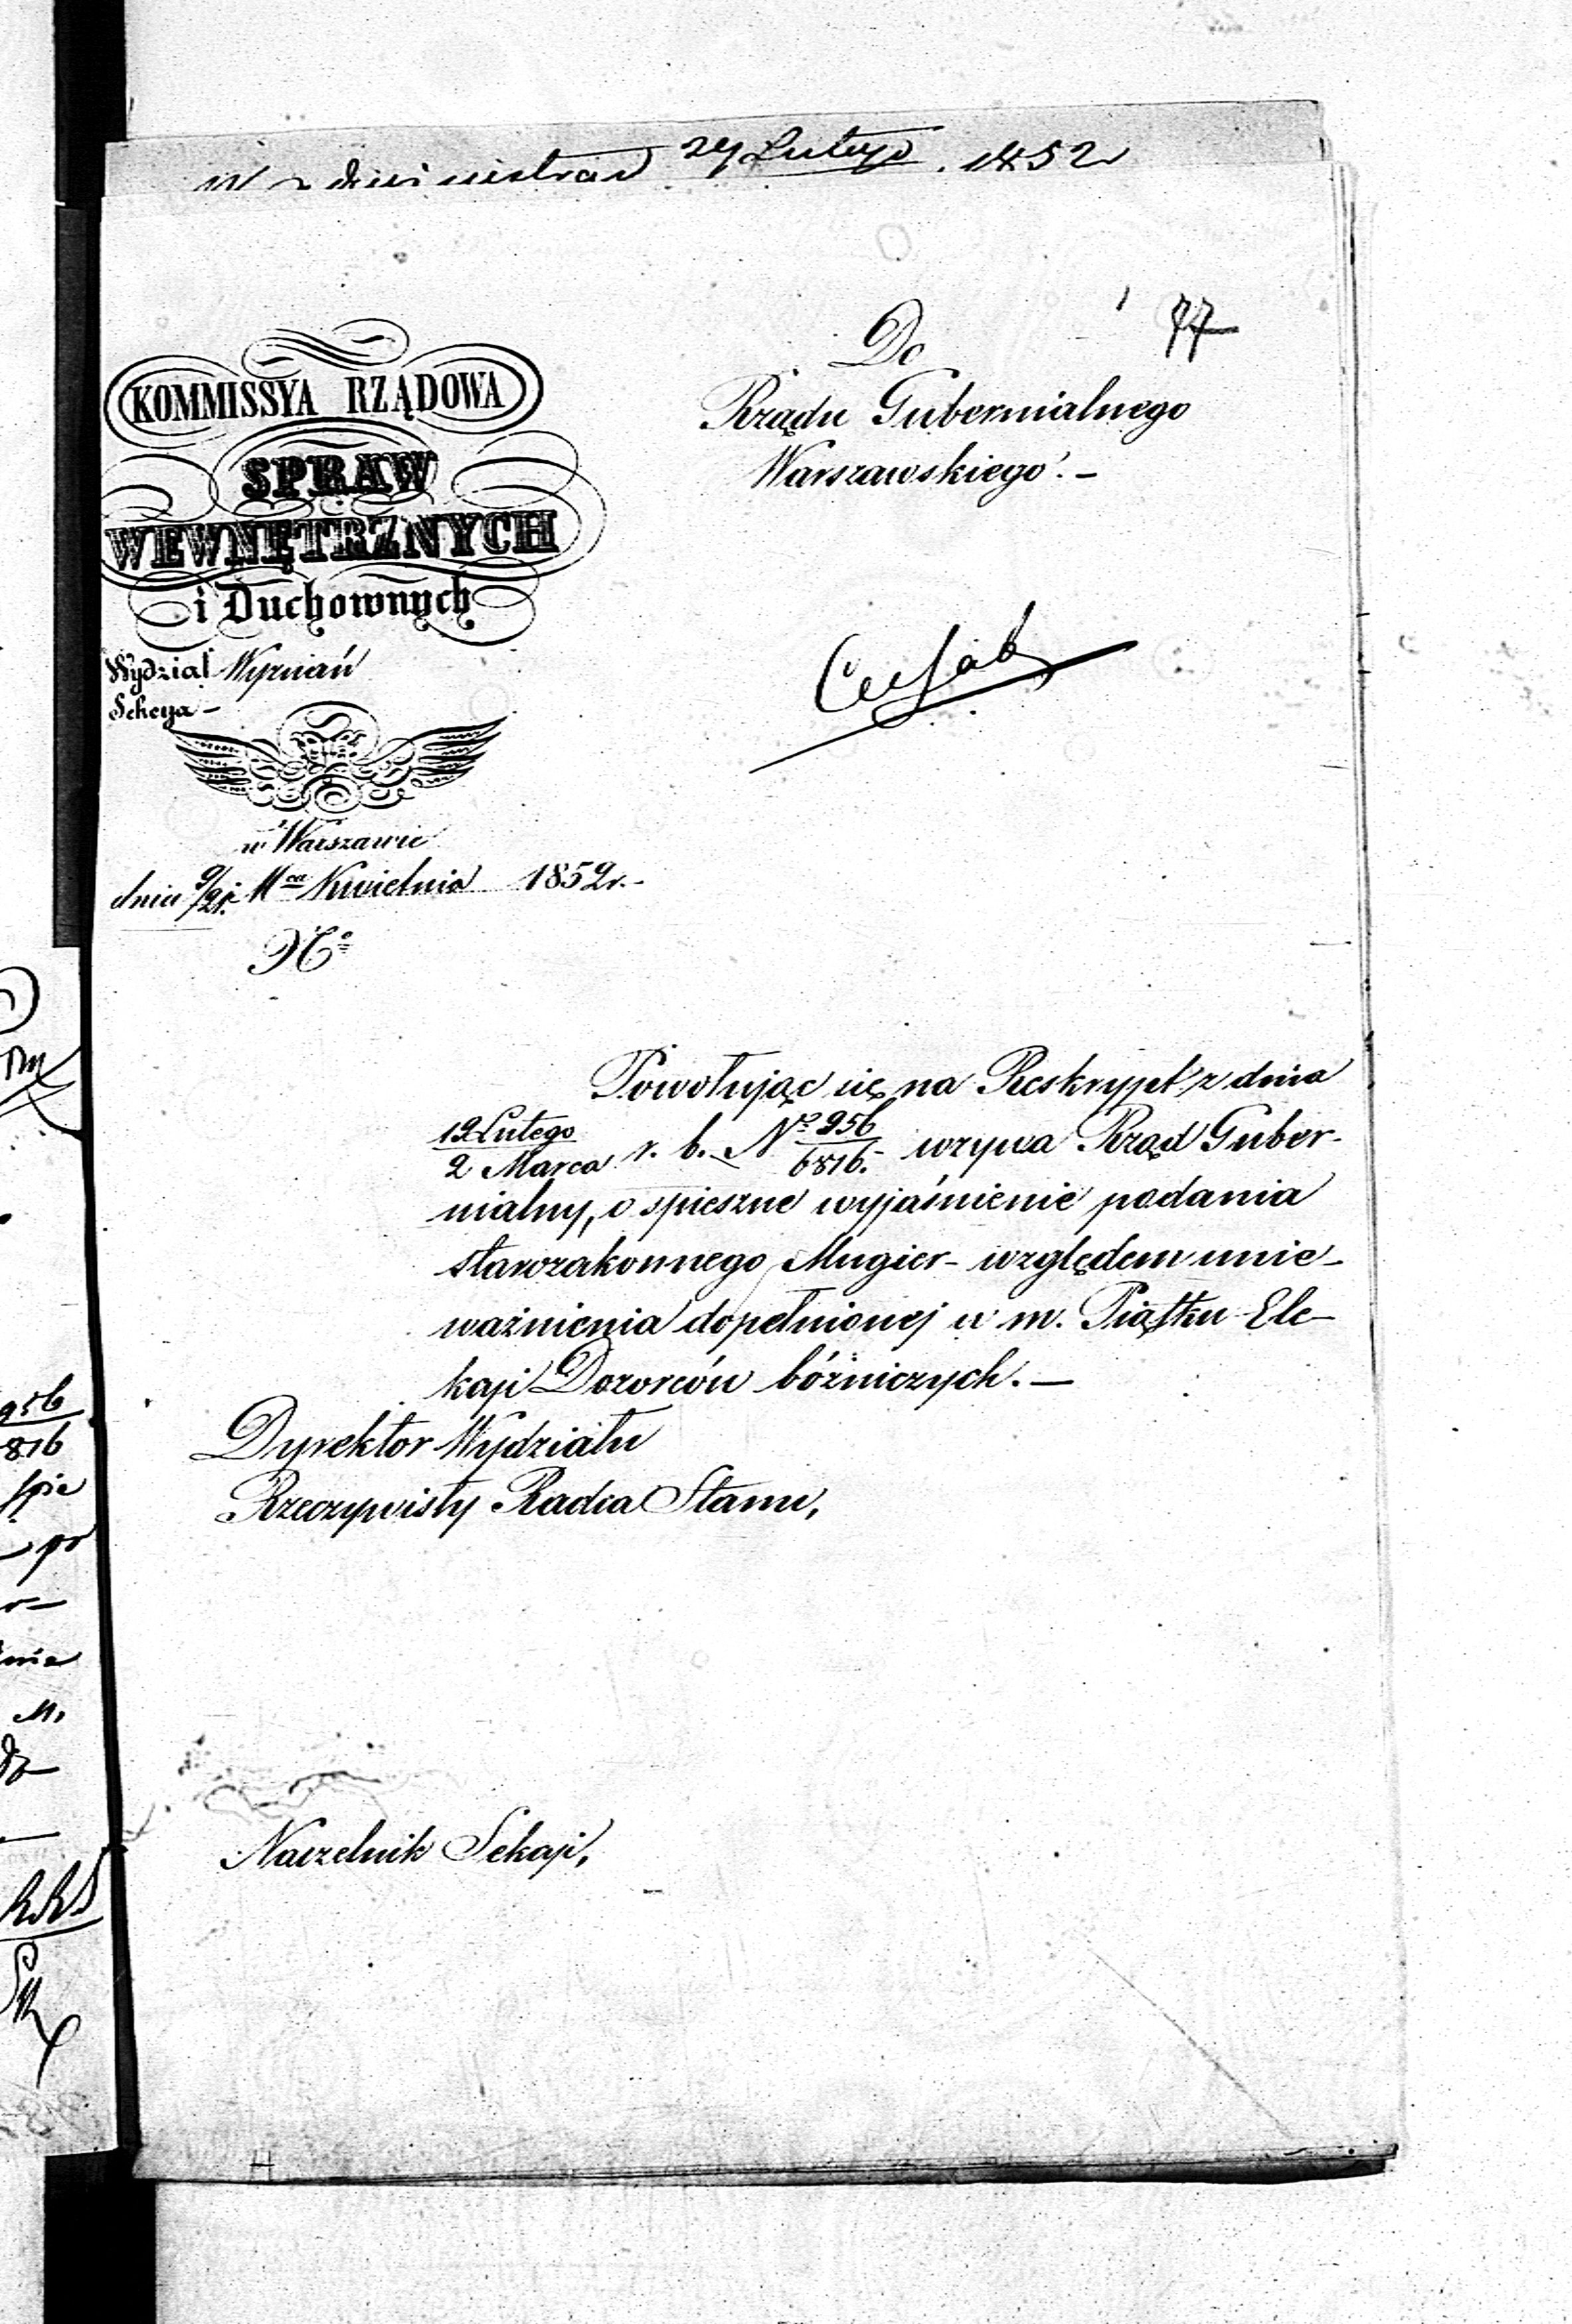 24 Lutego 1852
77
Do
Rządu Gubernialnego
Warszawskiego. –
KOMMISSYA RZĄDOWA
SPRAW
WEWNĘTRZNYCH
i Duchownych
Wydział Wyznań
Sekcya –
w Warszawie
dnia 9/21 Mca Kwietnia 1852 r. –
No
Powołując się na Reskrypt z dnia
19 Lutego / 2 Marca r. b. No 956/6816. wzywa Rząd Guber-
nialny, o spieszne wyjaśnienie podania
starozakonnego Mugier – względem unie-
ważnienia dopełnionej w m. Piątku Ele-
kcyi Dozorców bóżniczych. –
Dyrektor Wydziału
Rzeczywisty Radca Stanu,
Naczelnik Sekcyi,
956
816
spie
pr
nie
M.